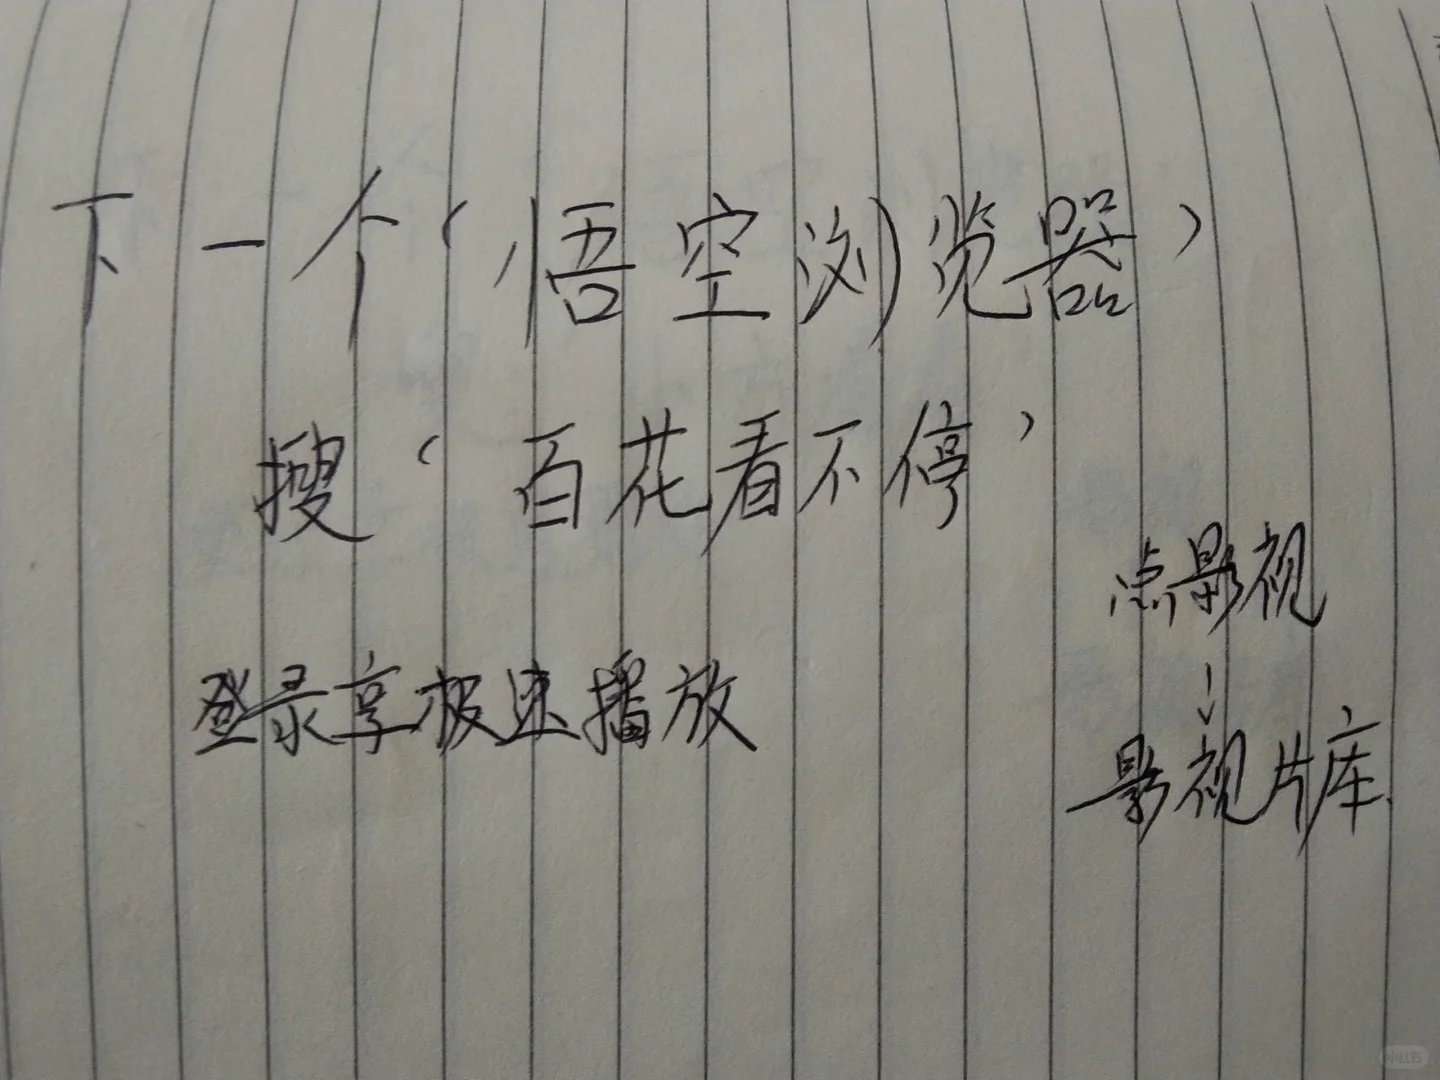 下一个‘悟空浏览器’
搜‘百花看不停’
点影视
↓
影视片库
登录享极速播放
小红书